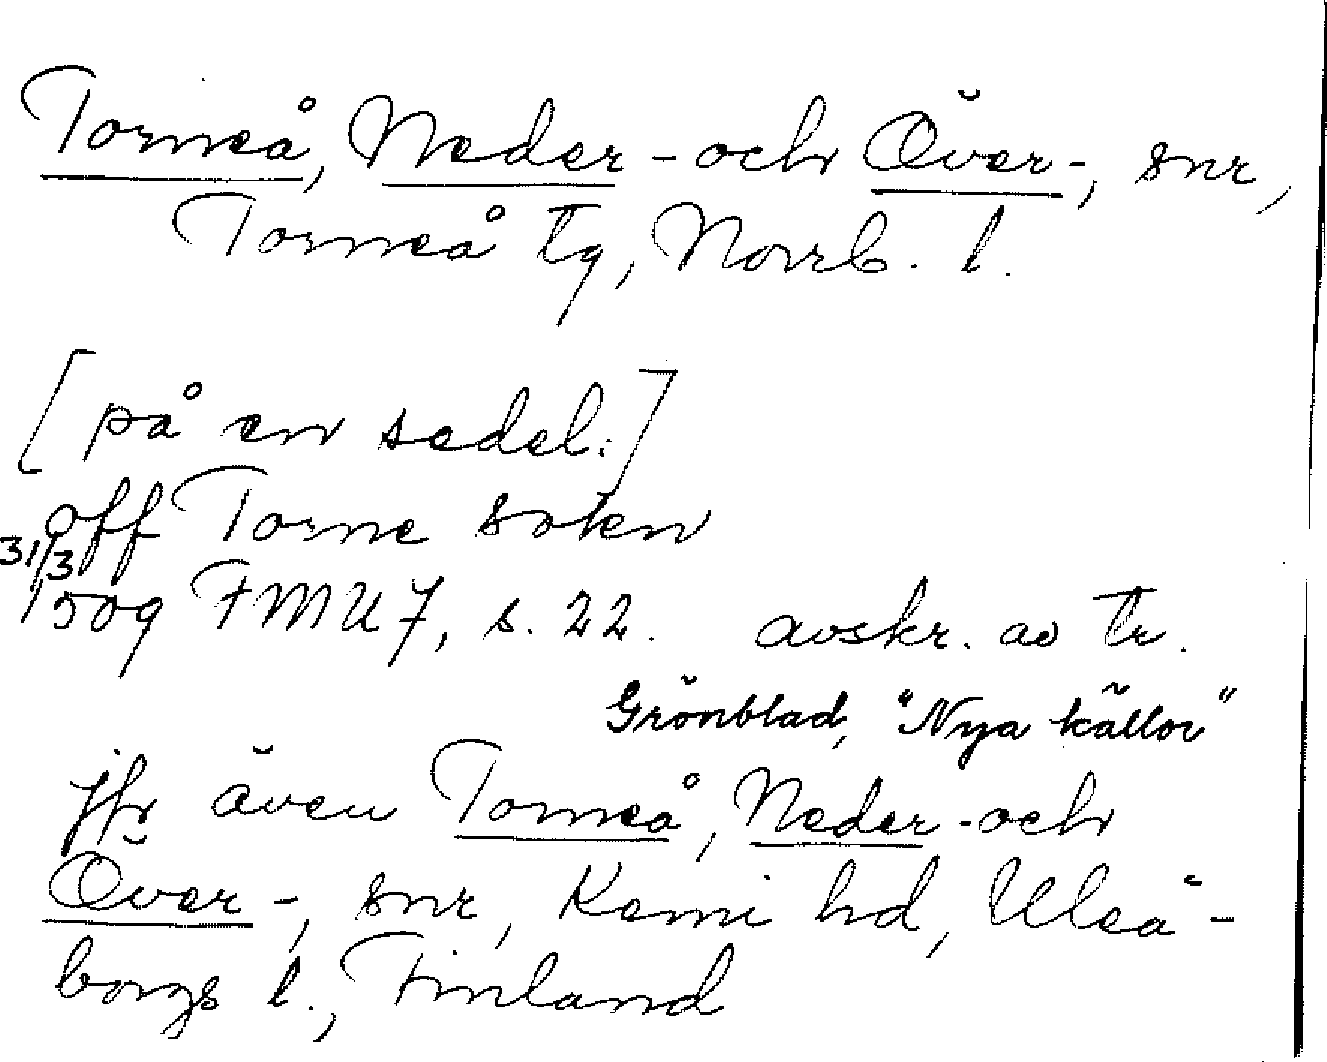 Torneå, Neder- och Över-, snr,
Torneå tg, Norrb. l.
[på en sedel:]
off Torne soken
31/3
1509 FMU 7, s. 22. avskr. av tr.
Grönblad, "Nya källor"
jfr även Torneå, Neder- och
Över-, snr, Kemi hd, Uleå-
borgs l., Finland